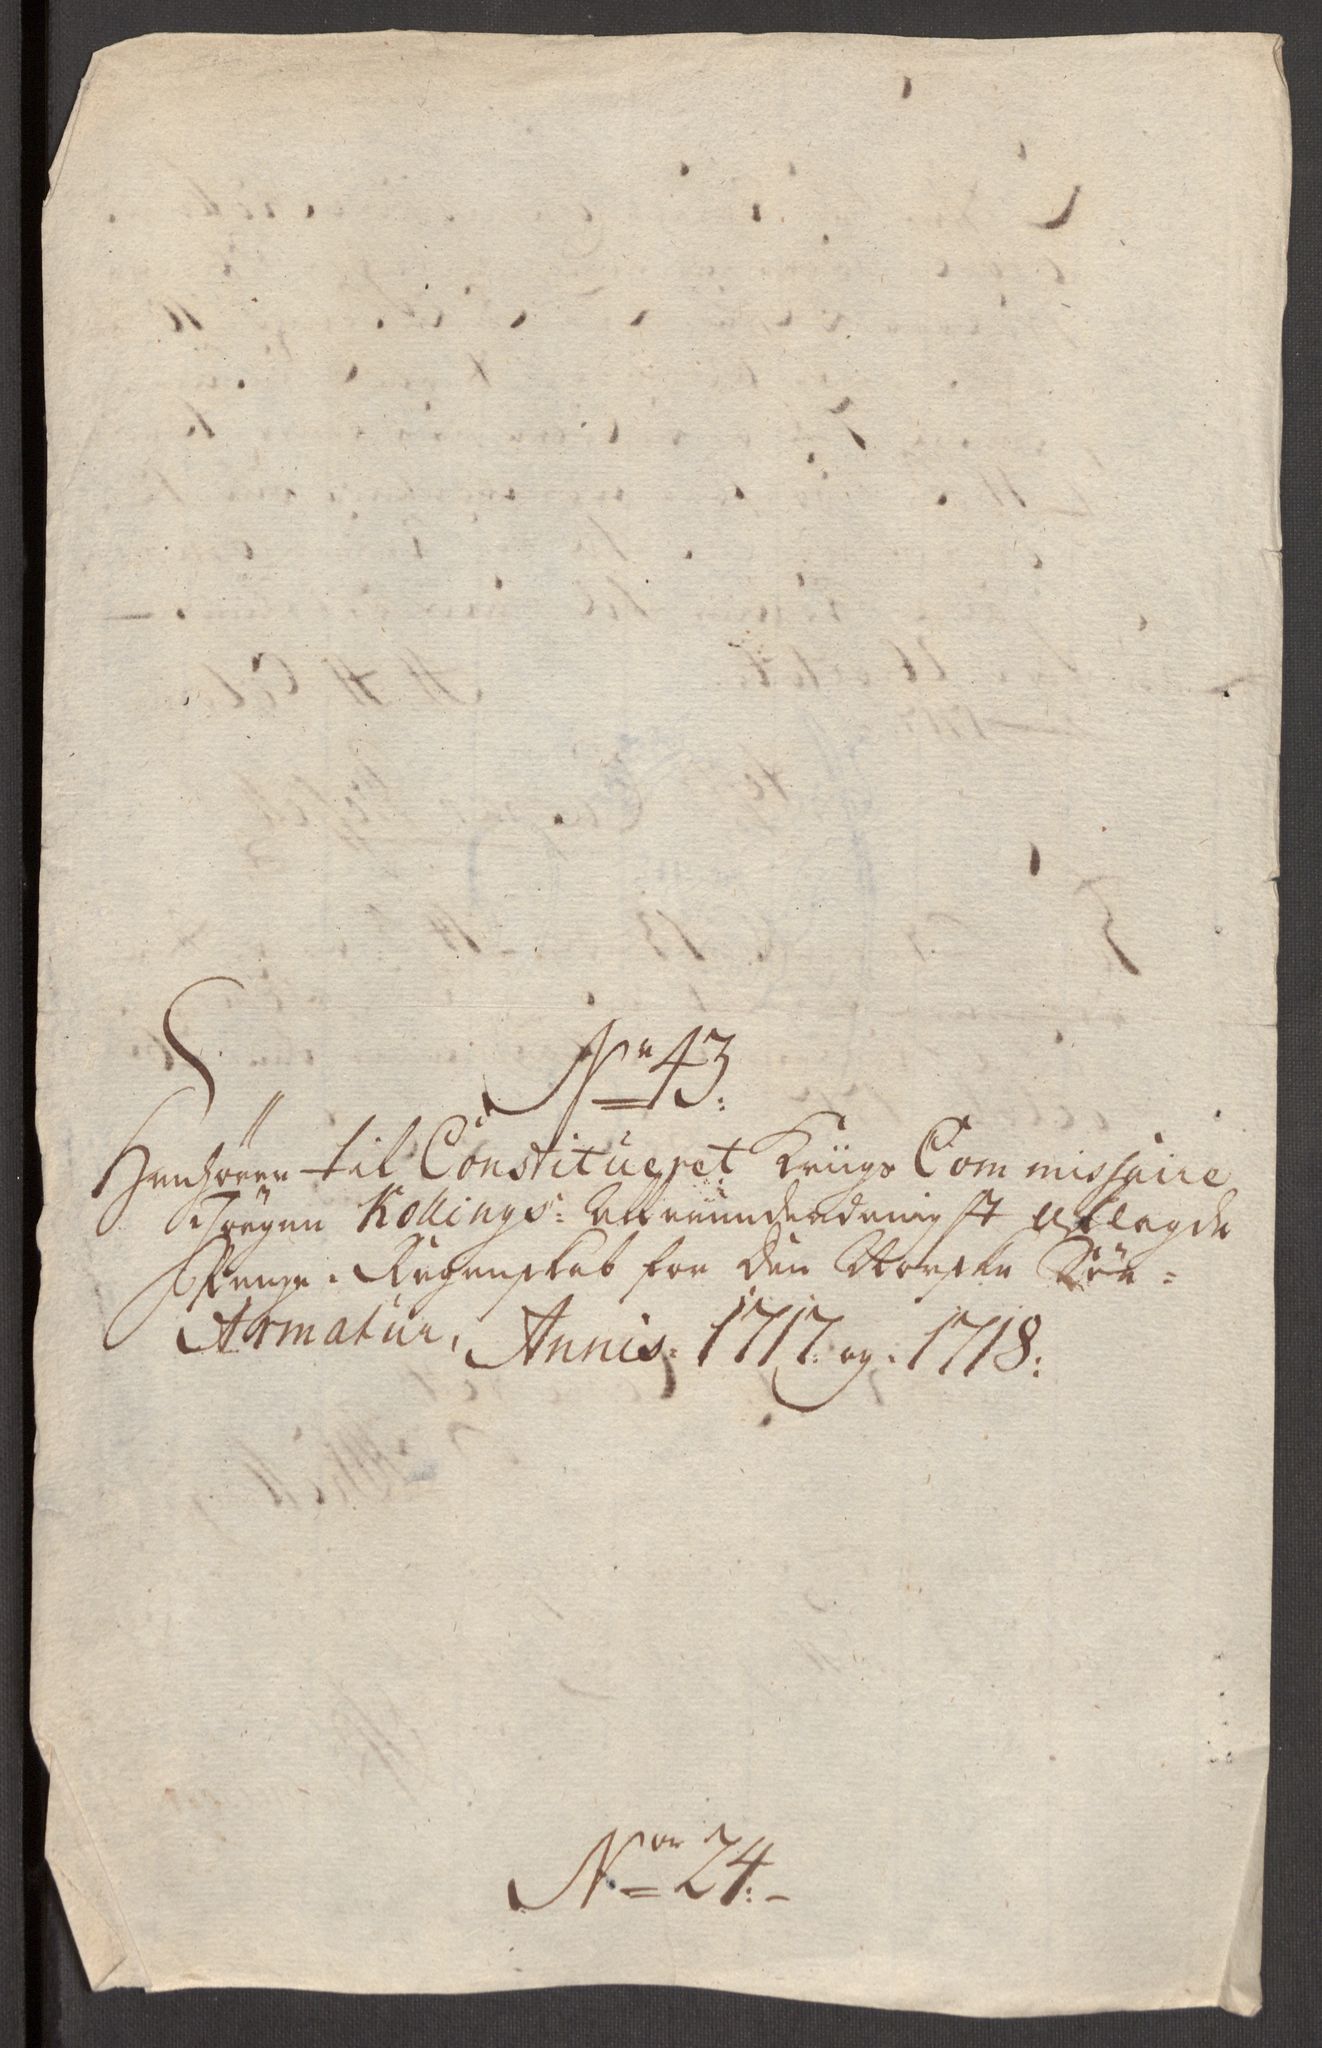 Nr 43.
Henhörer til Constitueret Kriigs Commissaire
Jörgen Kollings: allerunderdanigst aflagde
Penge-Regenskab for den Norske Söe-
Armatur, Annis. 1717. og. 1718.
Nor 24.